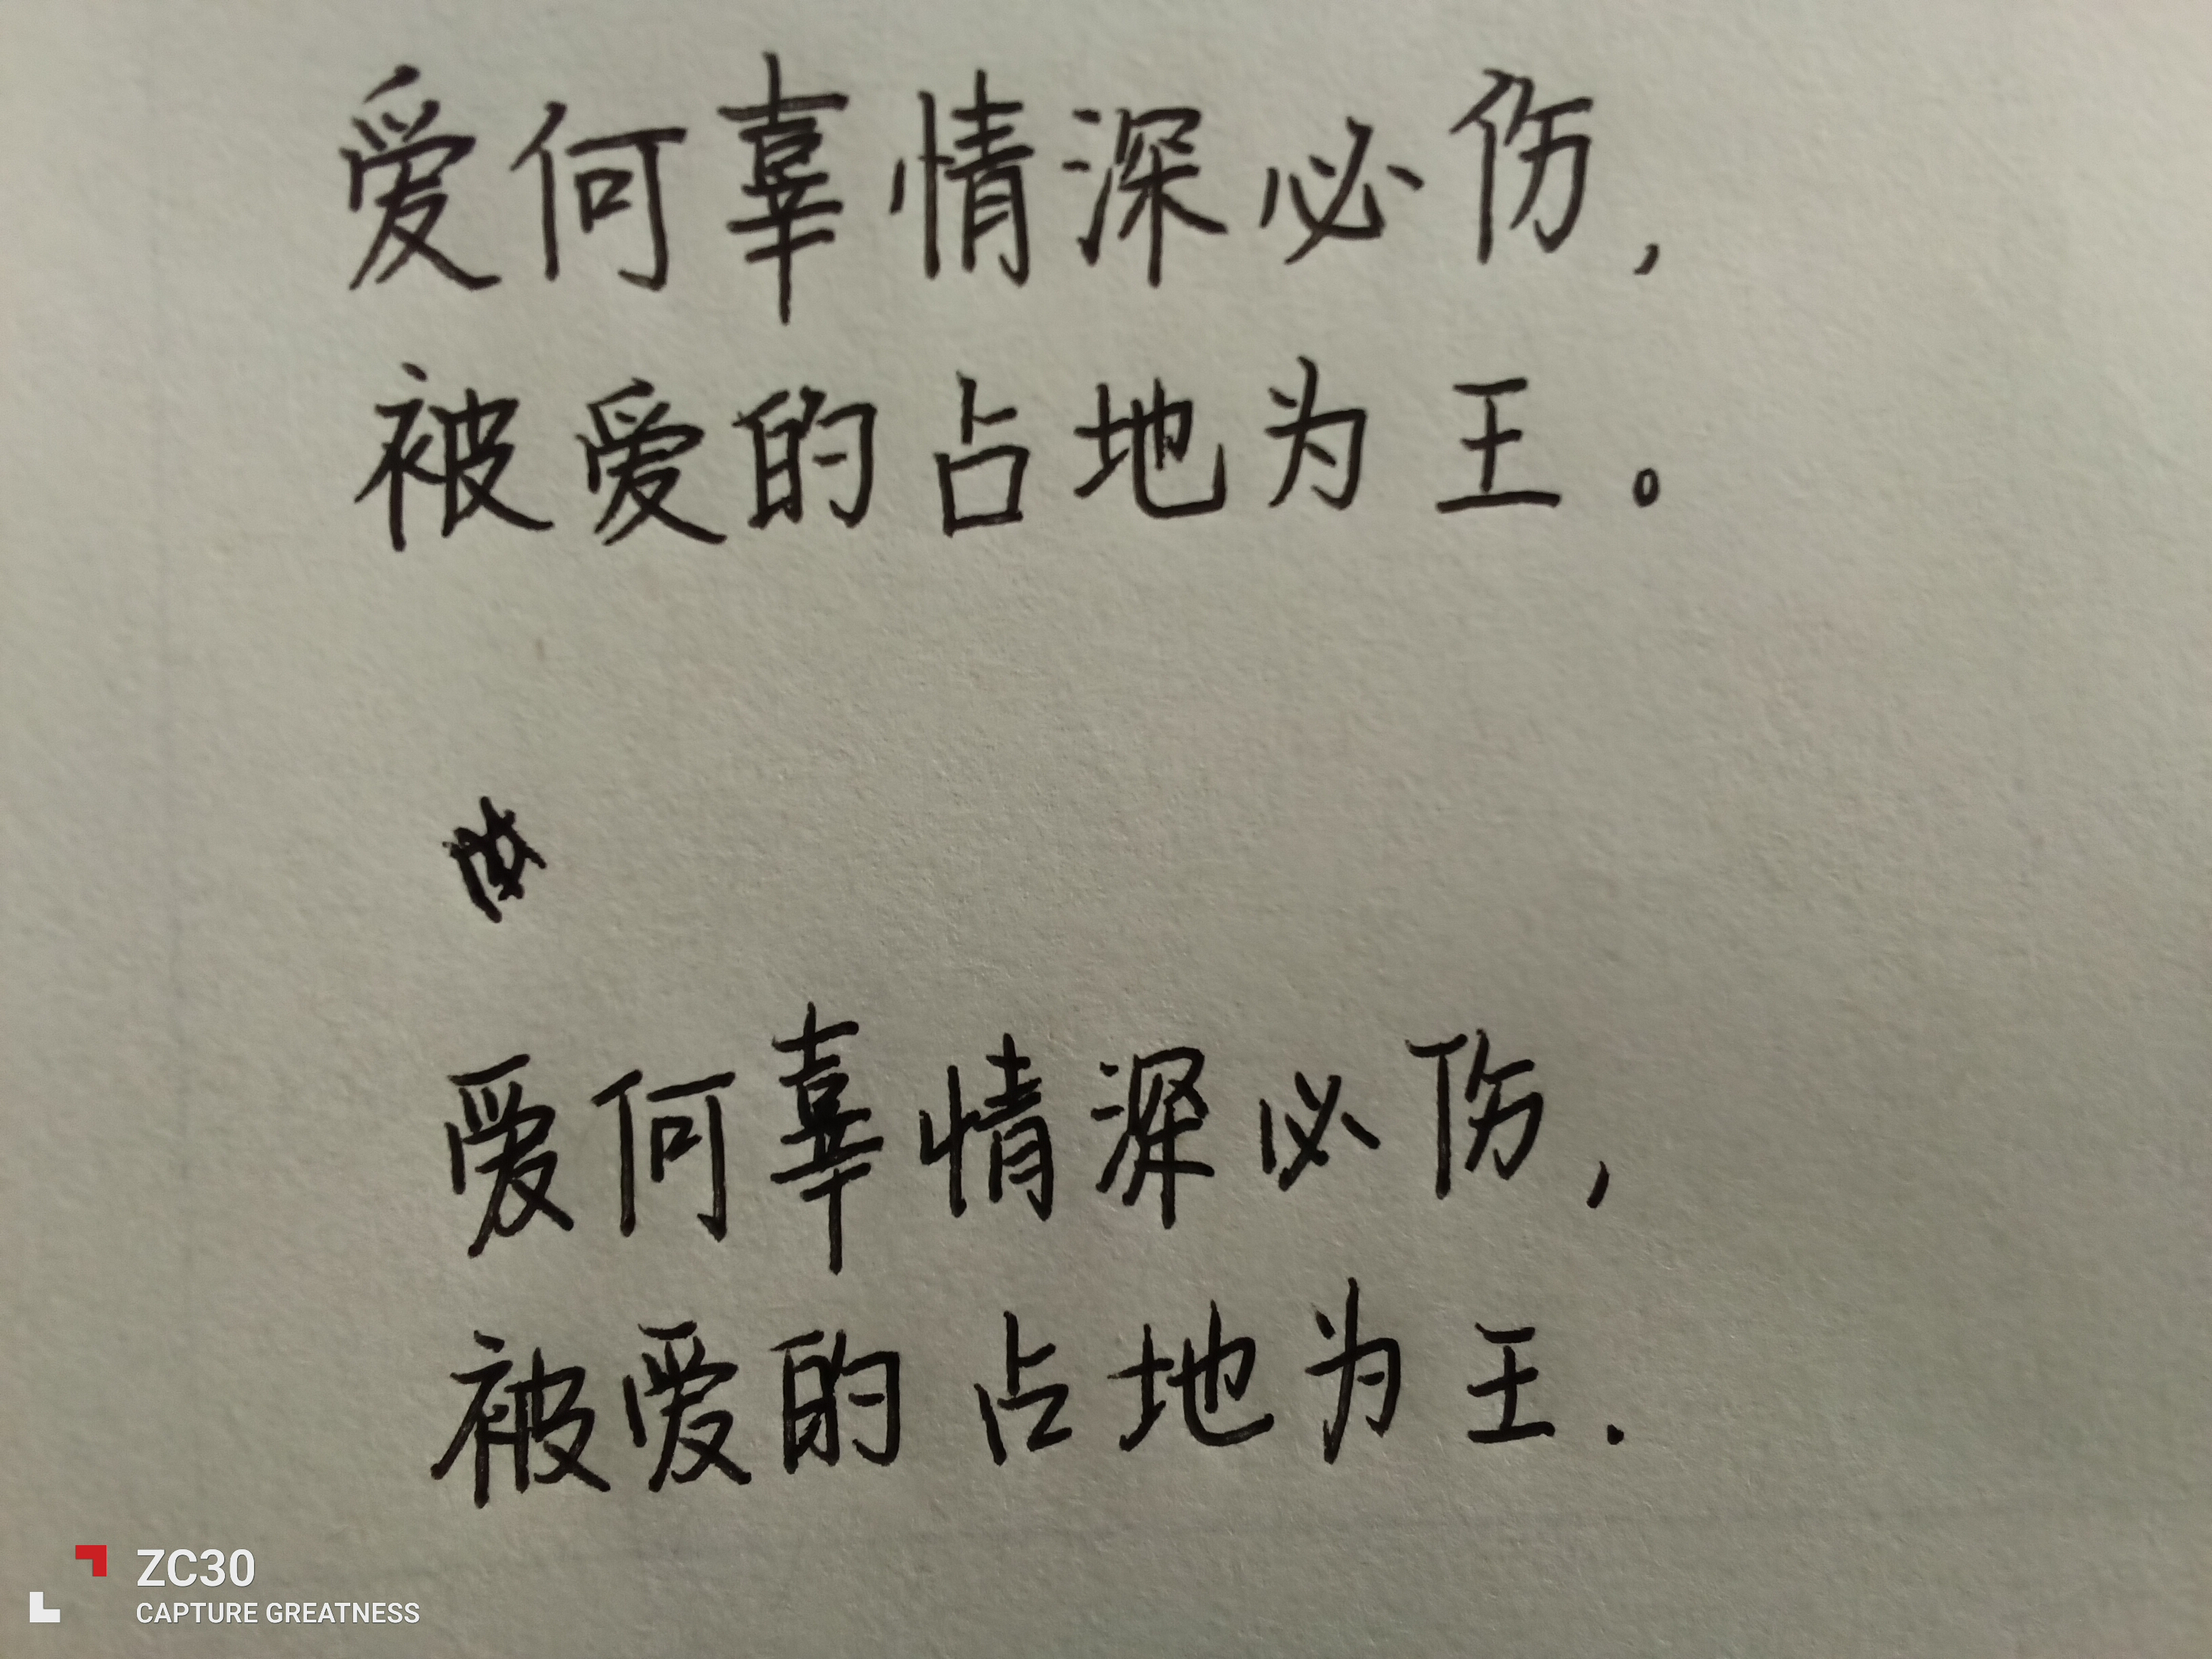 爱何辜情深必伤，
被爱的占地为王。
爱何辜情深必伤，
被爱的占地为王.
ZC30
CAPTURE GREATNESS